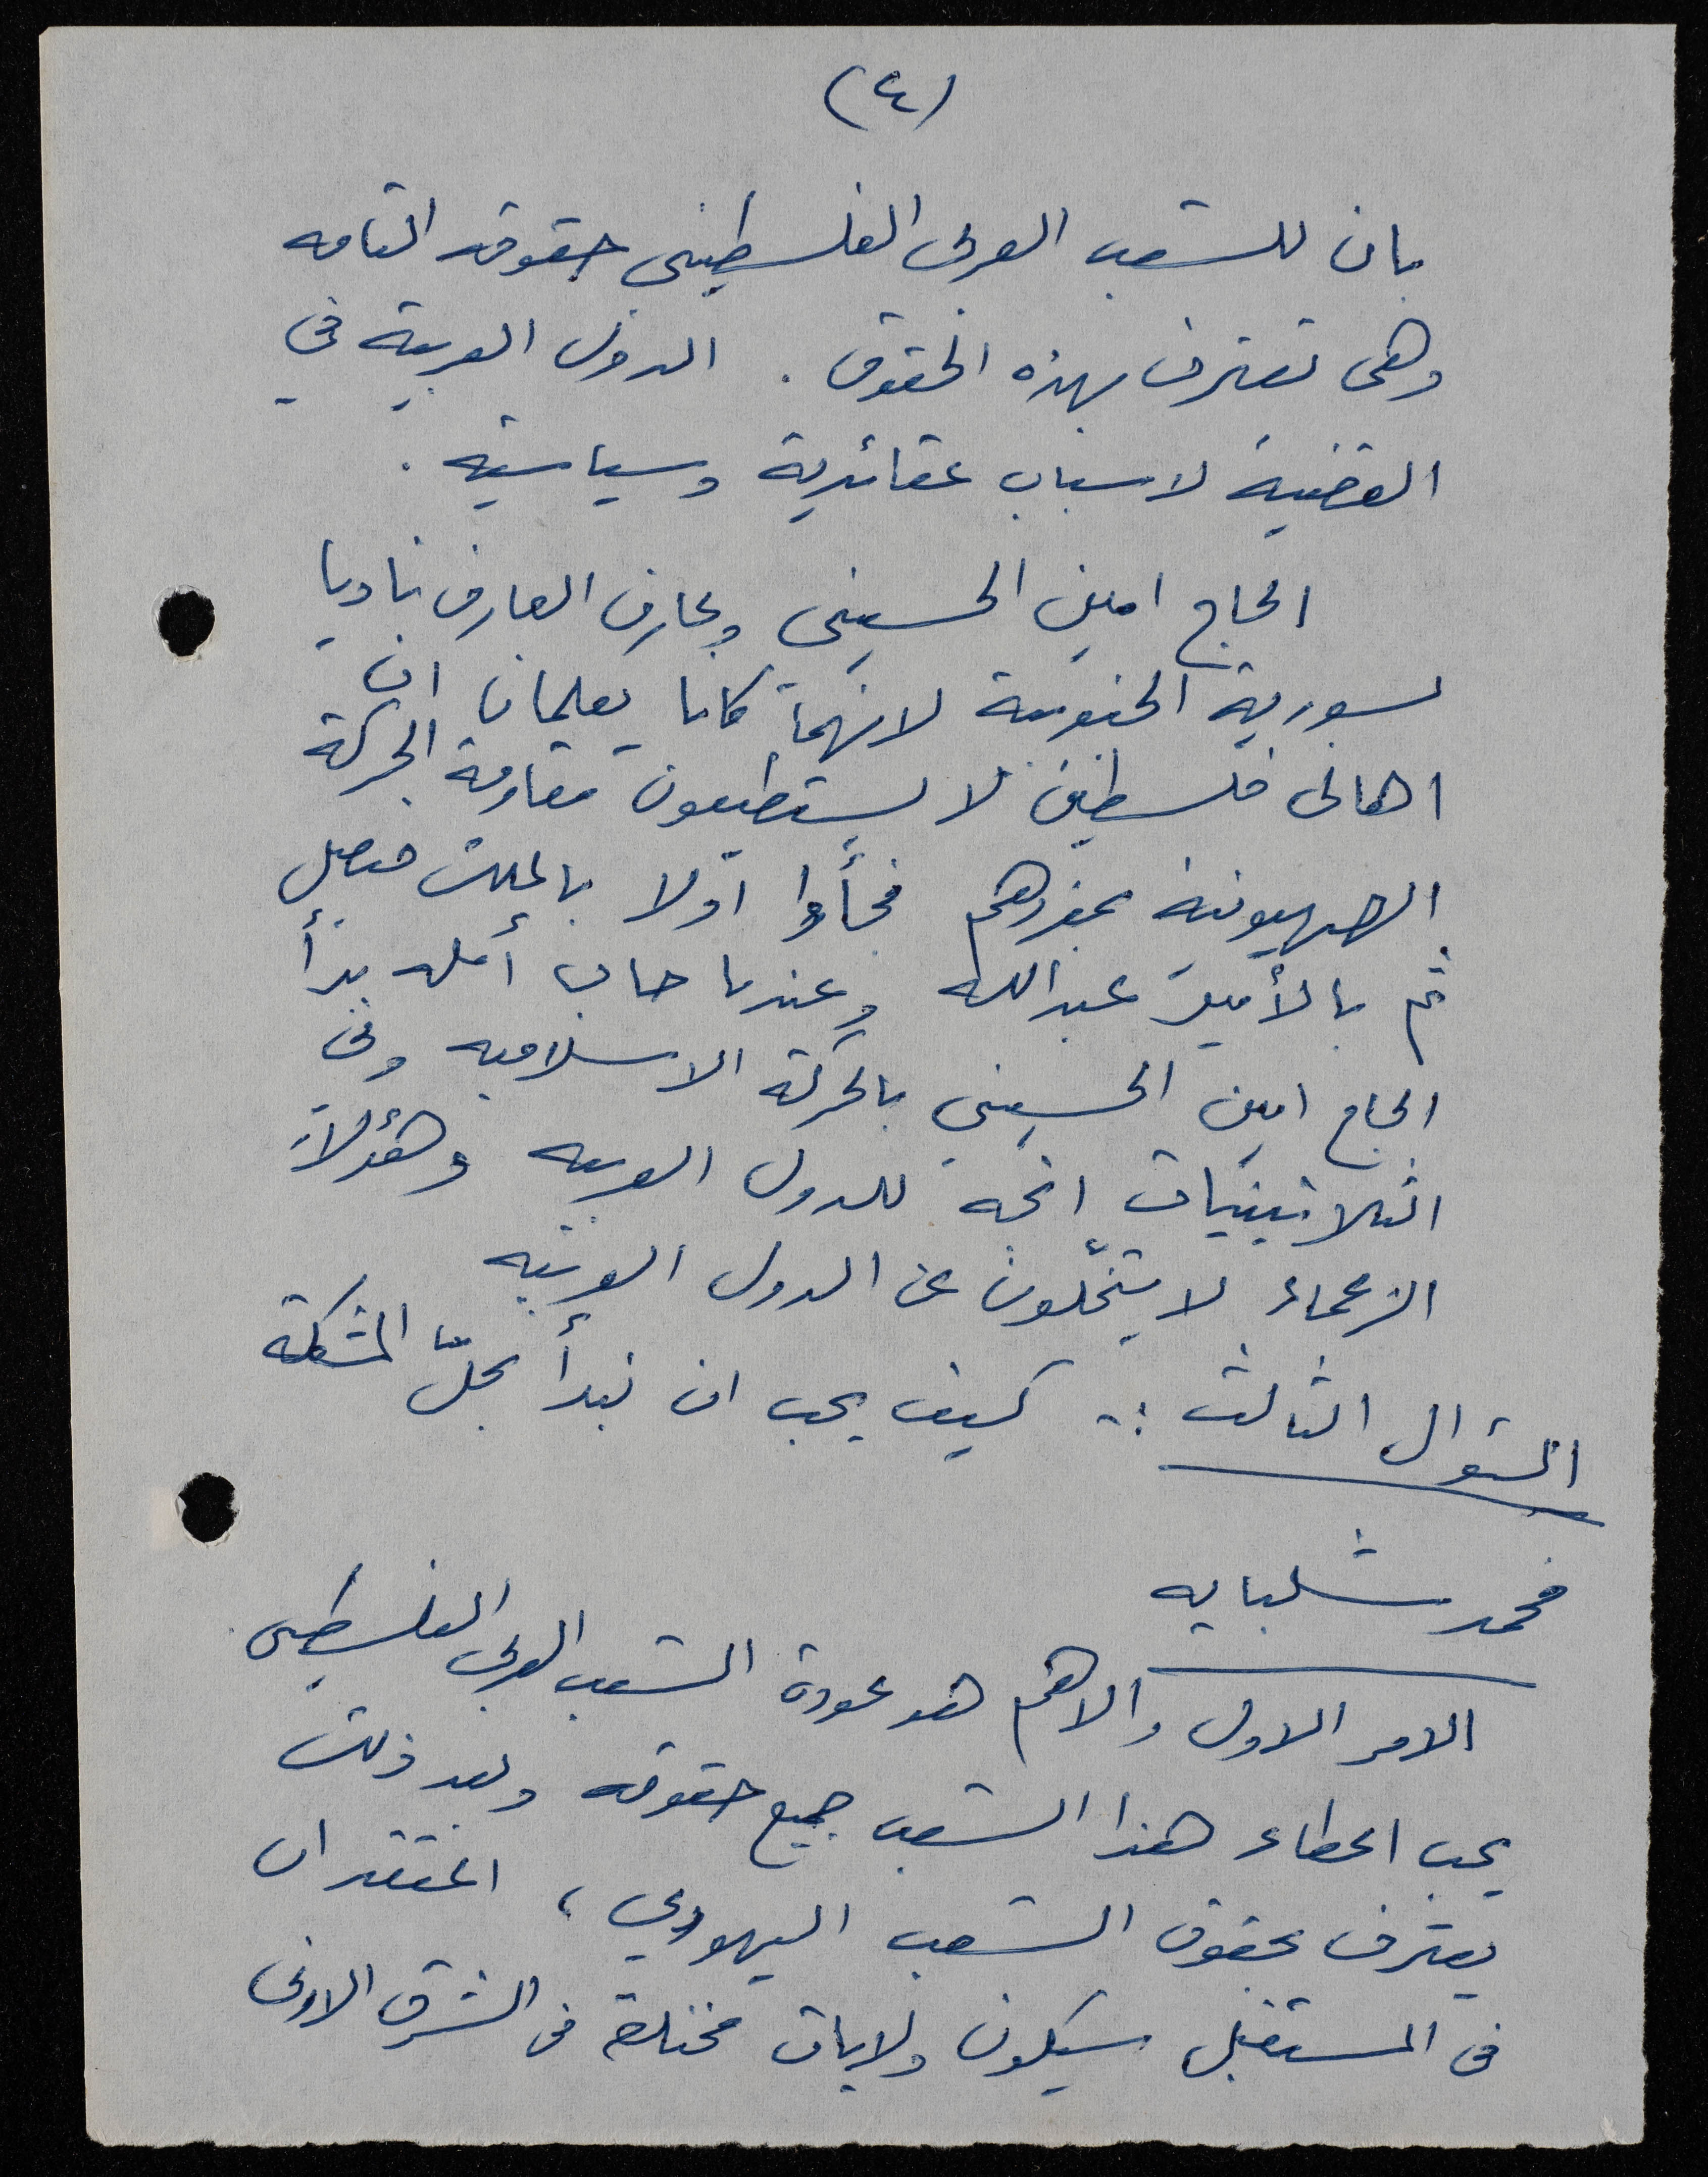 (٤)
بان للشعب العربي الفلسطيني حقوقه التامه
وهي تعترف بهذه الحقوق . الدول العربية في
القضية لاسباب عقائدية وسياسيه .
الحاج امين الحسيني وعارف العارف ناديا
لسورية الجنوبية لانهما كانا يعلمان ان
اهالي فلسطين لا يستطيعون مقاومة الحركة
الصهيونية بمفردهم فجأوا اولا بالملك فيصل
ثم بالأمير عبدالله وعندما خاب أمله بدأ
الحاج امين الحسيني بالحركة الاسلاميه وفي
الثلاثينيات اتجه للدول العربيه وهؤلاء
الزعماء لا يتخلّون عن الدول العربيه
السؤال الثالث :- كيف يجب ان نبدأ بحلّ المشكلة
محمد شلبايه
الامر الاول والاهم هو عودة الشعب العربي الفلسطيني
يجب اعطاء هذا الشعب جميع حقوقه وبعد ذلك
يعترف بحقوق الشعب اليهودي ، اعتقد ان
في المستقبل سيكون ولايات مختلفة في الشرق الادنى